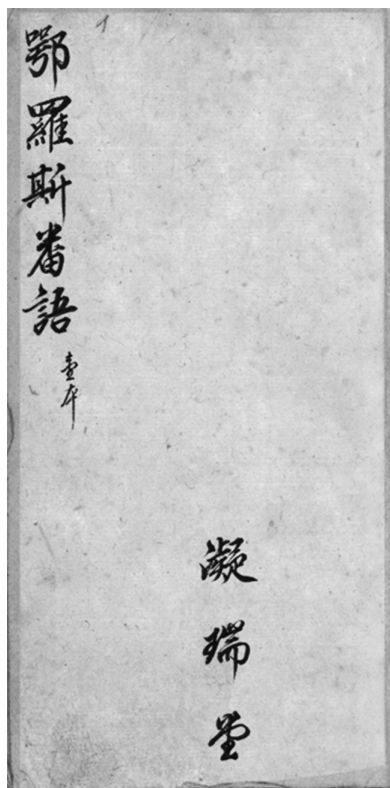 鄂羅斯番語
壹本
凝瑞堂